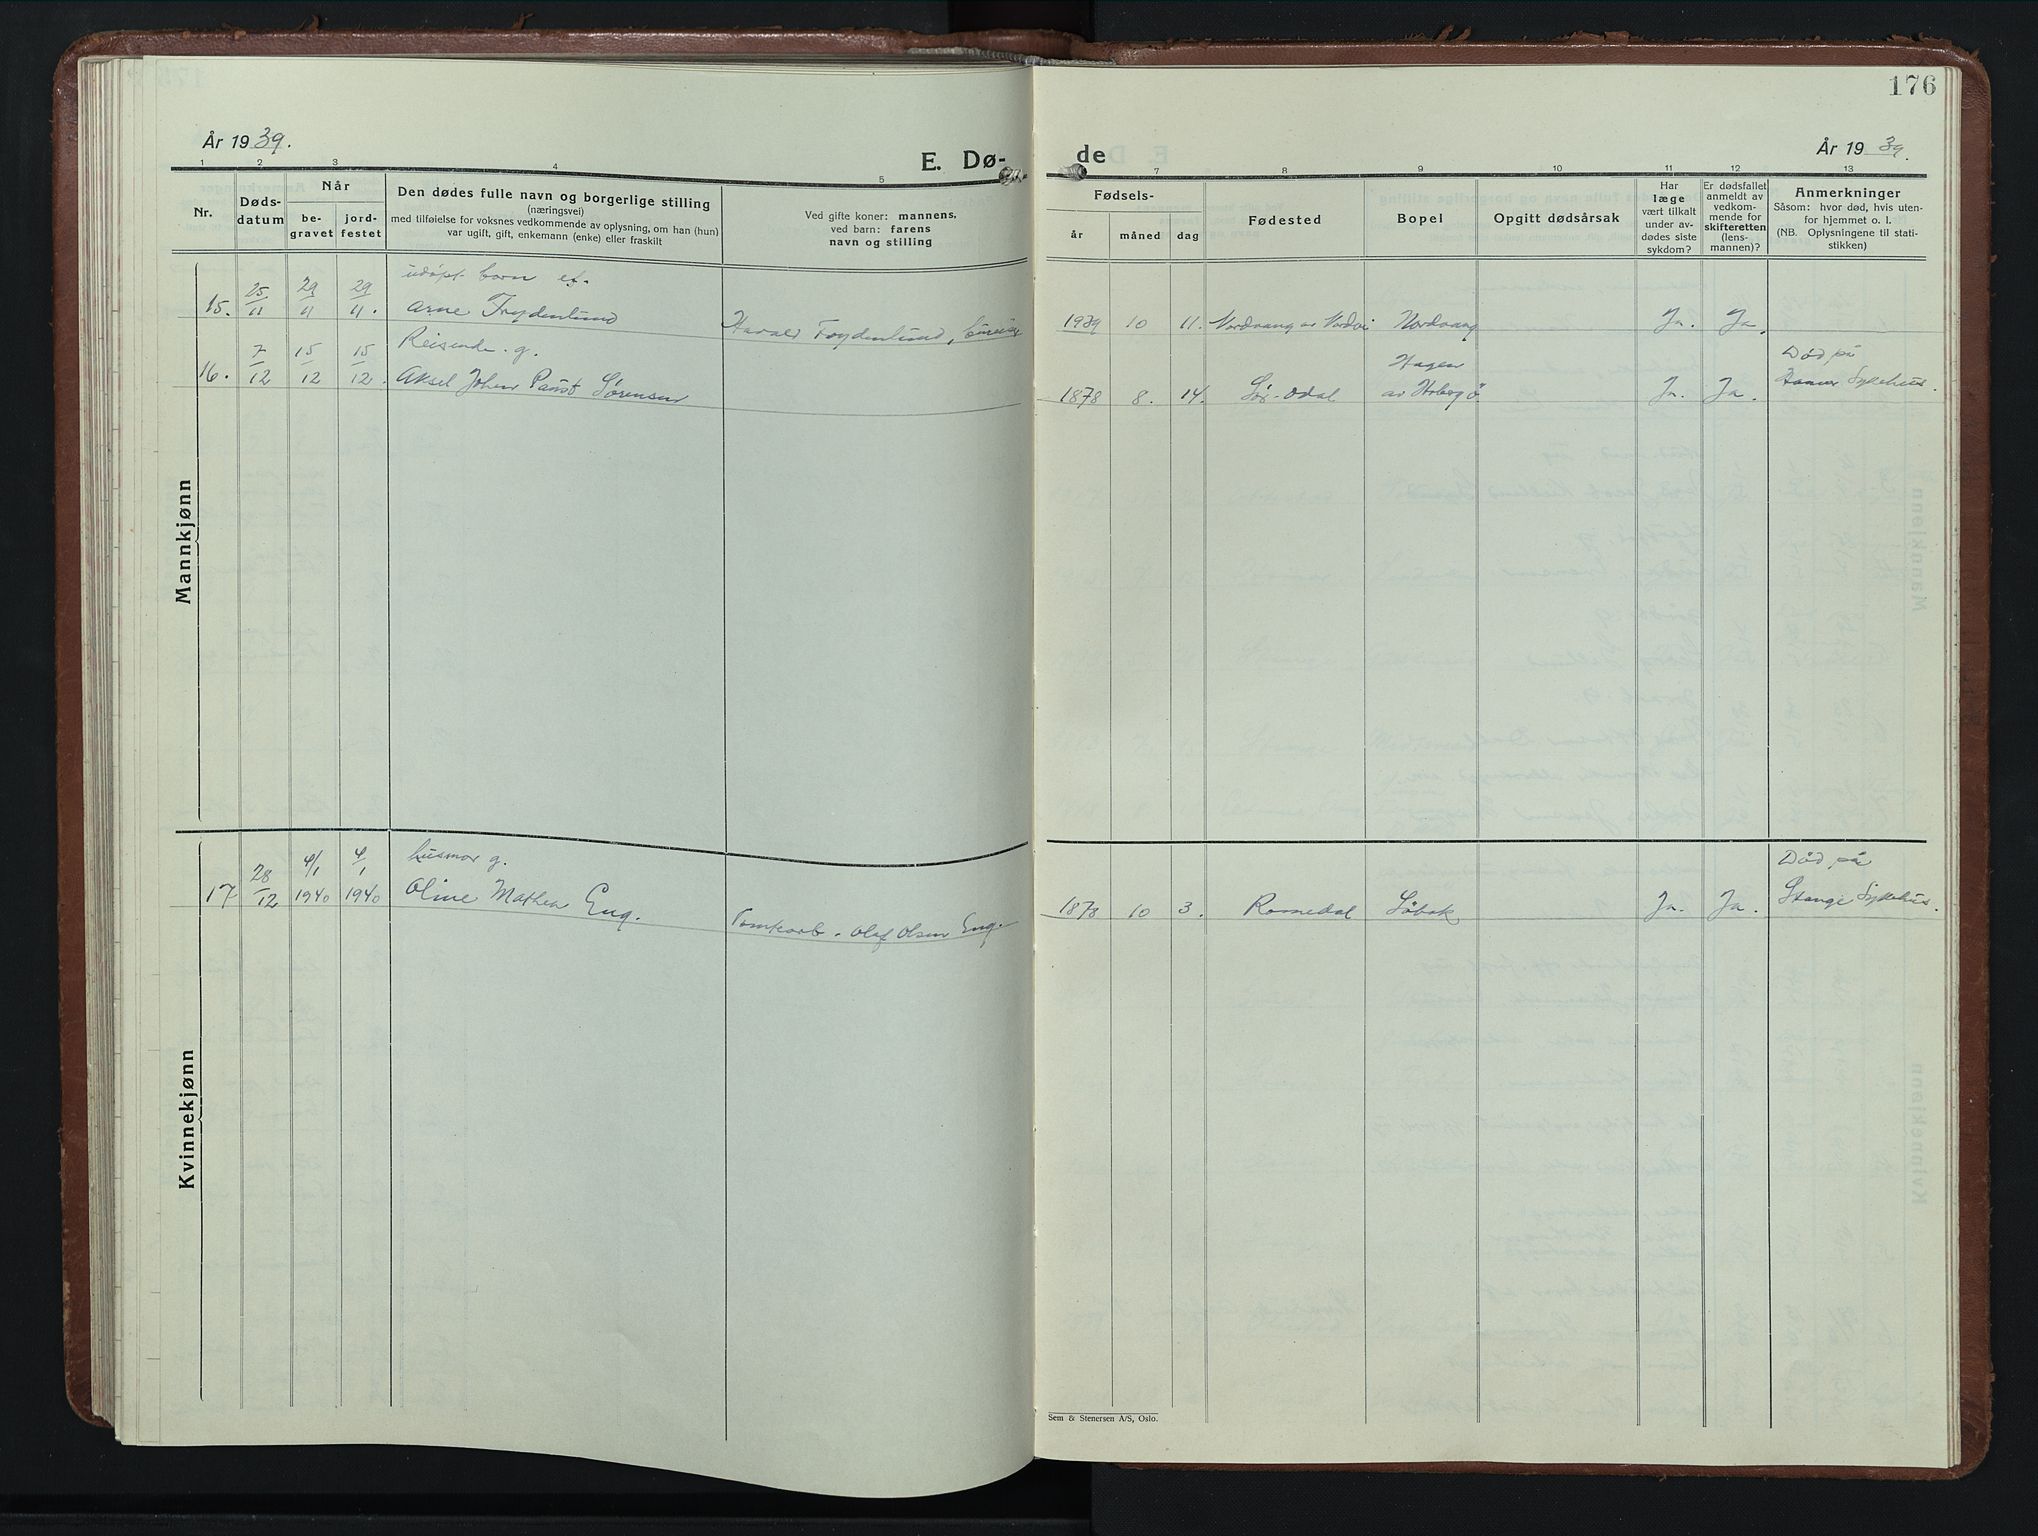 176
År 1939.
E. Dø-
de
År 1939.
1 2 3 4 5
7 8 9 10 11 12 13
Nr.
Døds-
datum
Når
be-
gravet
jord-
festet
Den dødes fulle navn og borgerlige stilling
(næringsvei)
med tilføielse for voksnes vedkommende av oplysning, om han (hun)
var ugift, gift, enkemann (enke) eller fraskilt
Ved gifte koner: mannens,
ved barn: farens
navn og stilling
Fødsels-
år måned dag
Fødested
Bopel
Opgitt dødsårsak
Har
læge
vært tilkalt
under av-
dødes siste
sykdom?
Er dødsfallet
anmeldt av
vedkom-
mende for
skifteretten
(lens-
mannen)?
Anmerkninger
Såsom: hvor død, hvis uten-
for hjemmet o. l.
(NB. Oplysningene til stati-
stikken)
Mannkjønn
udøpt barn
15. 25/11 29/11 29/11. Arne Frydenlund Harald Frydenlund, 1939 10 11. Nordvang av Nordvi Nordvang Ja. Ja.
Reisende. g.
Hagen
Død på
16. 7/12 15/12 15/12. Aksel Johan Paust Sørensen 1878 8. 14. Sør-Odal av Ja. Ja. Hamar Sykehus.
Kvinnekjønn
husmor g.
Død på
17 28/12 4/1 1940 4/1 1940 Oline Mathea Eng. Tomtearb. Olaf Olsen Eng. 1878 10 3. Romedal Ja. Ja. Stange Sykehus.
Sem & Stenersen A/S, Oslo.